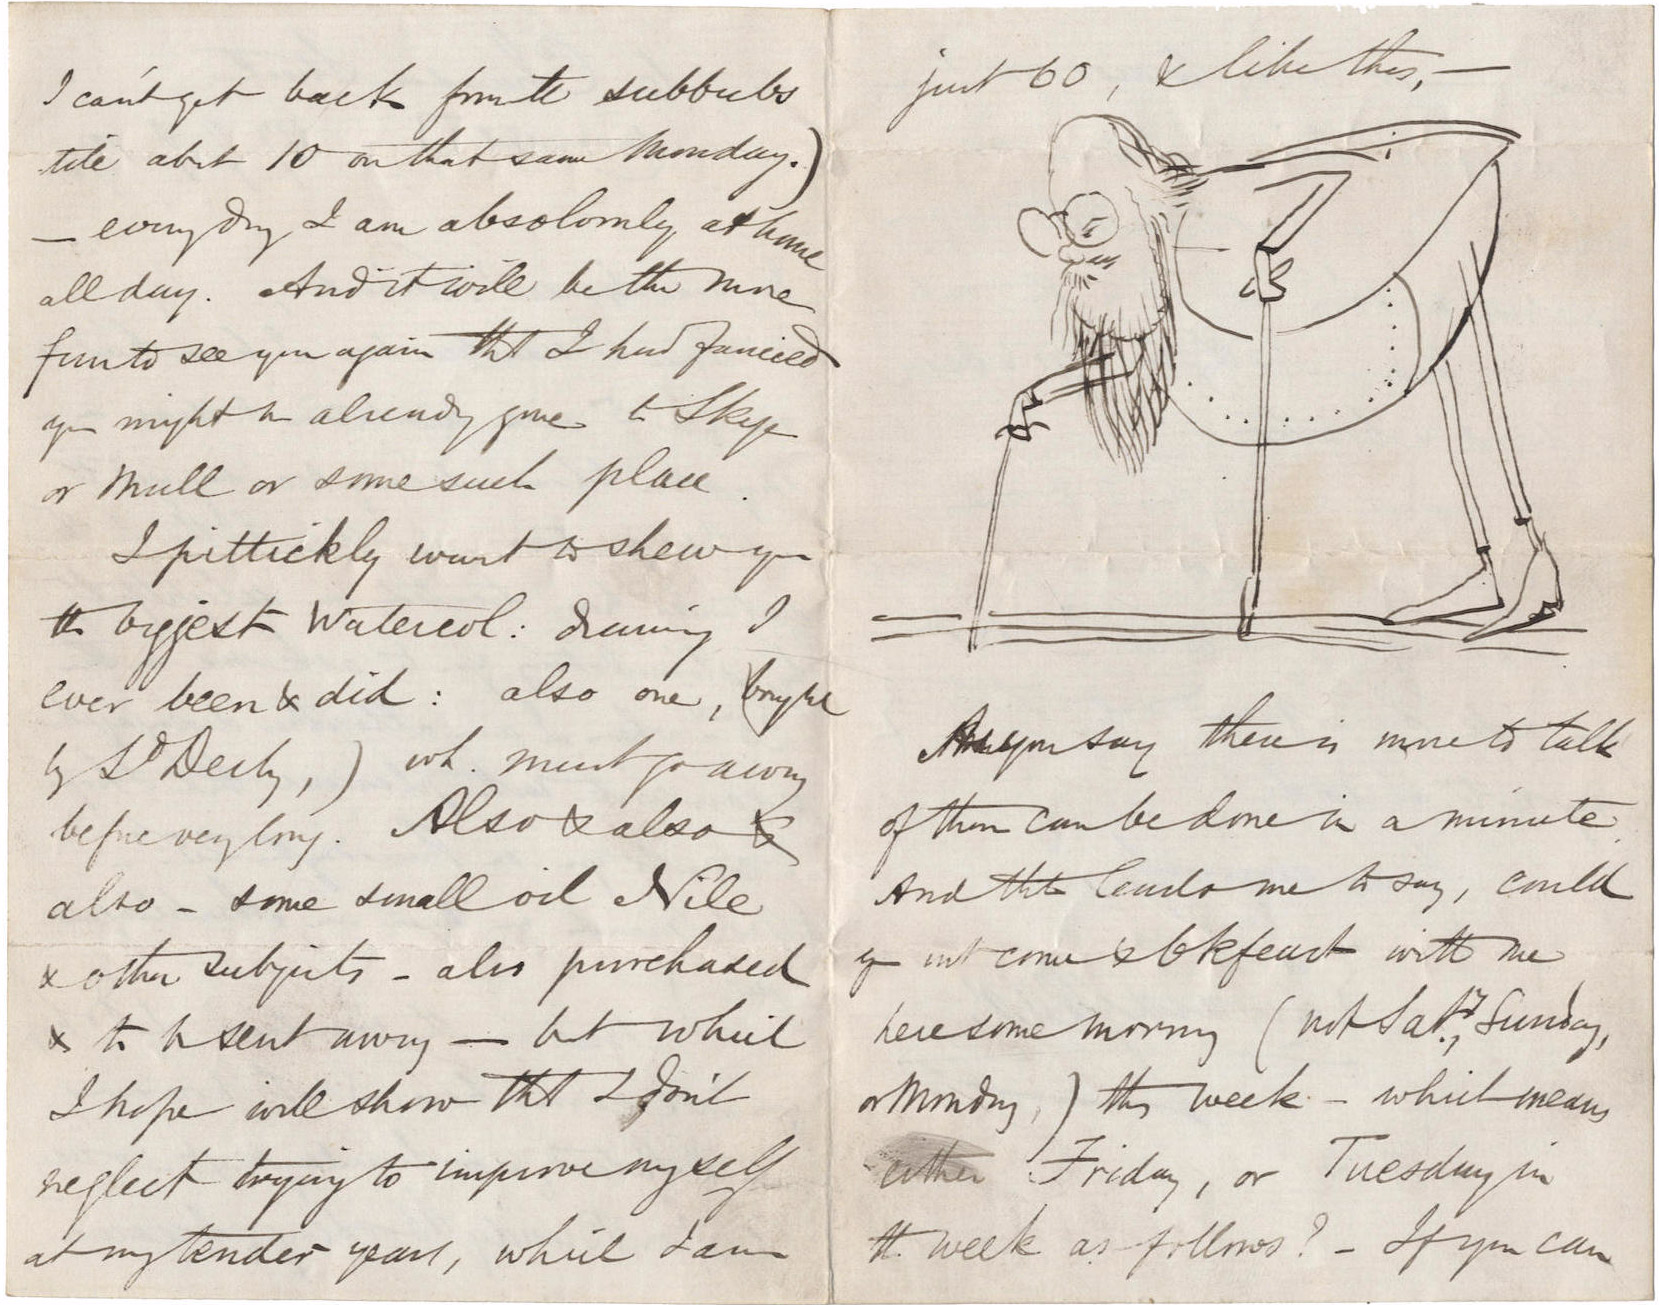 I can't get back from the subbubs
till abt 10 on that same Monday.)
— everydry I am absolomly at home
all day. And it will be the more
fun to see you again tht I had fancied
you might be already gone to Skye
or Mull or some such place.
I pittickly want to shew you
the byggest Watercol: drawing I
ever been & did: also one, (bought
by Ld Derby,) wh. must go away
before very long. Also & also &
also – some small oil Nile
& other subjects – also purchased
& to be sent away — but which
I hope will show tht I don't
neglect trying to improve myself
at my tender years, which I am
just 60, & like this, —
As you say there is more to talk
of than can be done in a minute.
And tht leads me to say, could
you not come & bkfeast with me
here some morning (not Sat.y, Sunday,
or Monday,) this week – which means
either Friday, or Tuesday in
the week as follows? – If you can